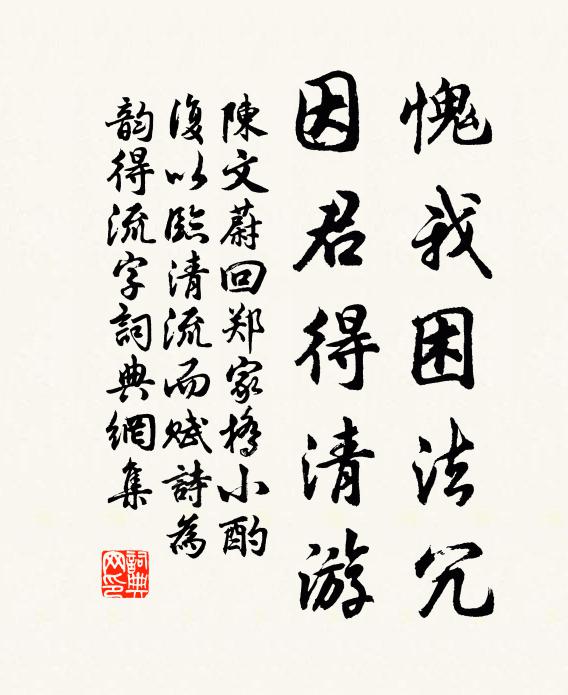 愧我困法冗
因君得清游
陳文蔚回郑家橋小酌
復以臨清流而赋詩為
韵得流字詞典網集
詞典网印